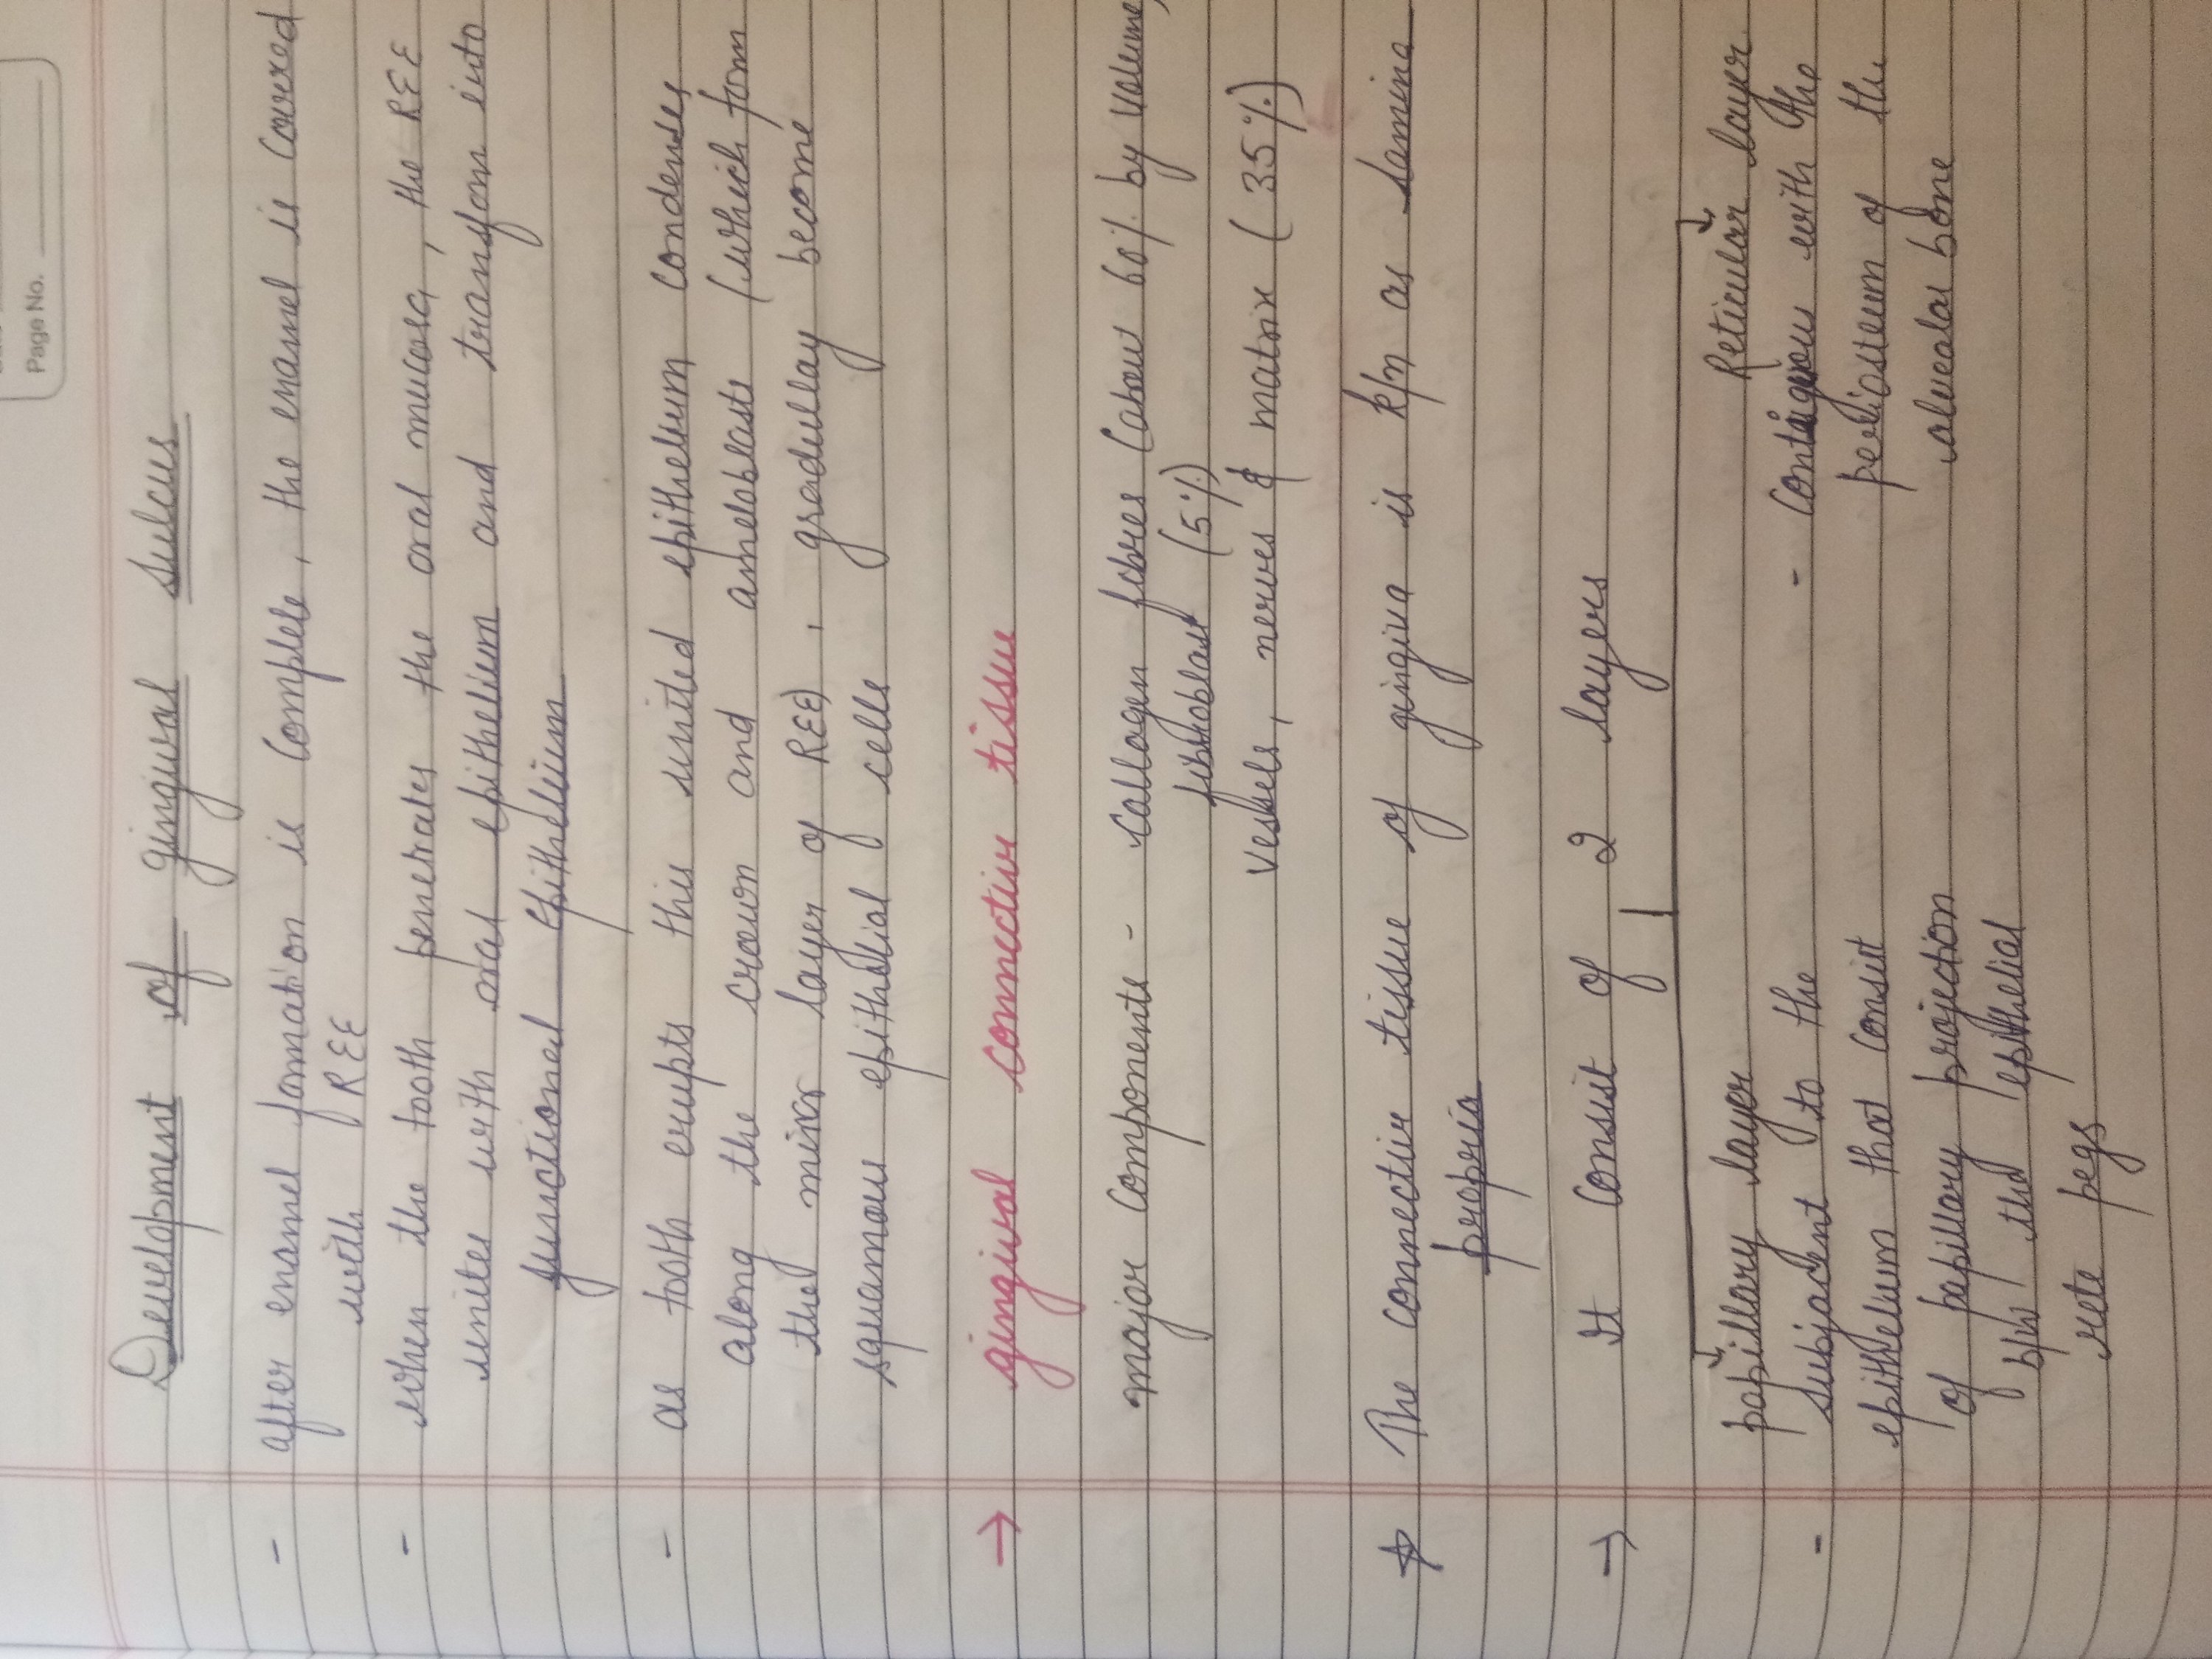 Page No.
Development of gingival sulcus
- after enamel formation is complete, the enamel is covered
with REE
- when the tooth penetrates the oral mucosa, the REE
unites with oral epithelium and transform into
junctional epithelium
- as tooth erupts this united epithelium condenses
along the crown and ameloblasts (which form
the layer of REE), gradullay become
squamous epithelial cells
→ gingival connective tissue
major components - collagen fibres (about 60% by volume,
fibroblast (5%)
vessels, nerves & matrix (35%)
* The connective tissue of gingiva is k/n as Lamina
propria
→ It consist of 2 layers
papillary layer
- subjacent to the
epithelium that consist
of papillary projection
b/w the epithelial
rete pegs
Reticular layer
- contiguous with the
periosteum of the
alveolar bone